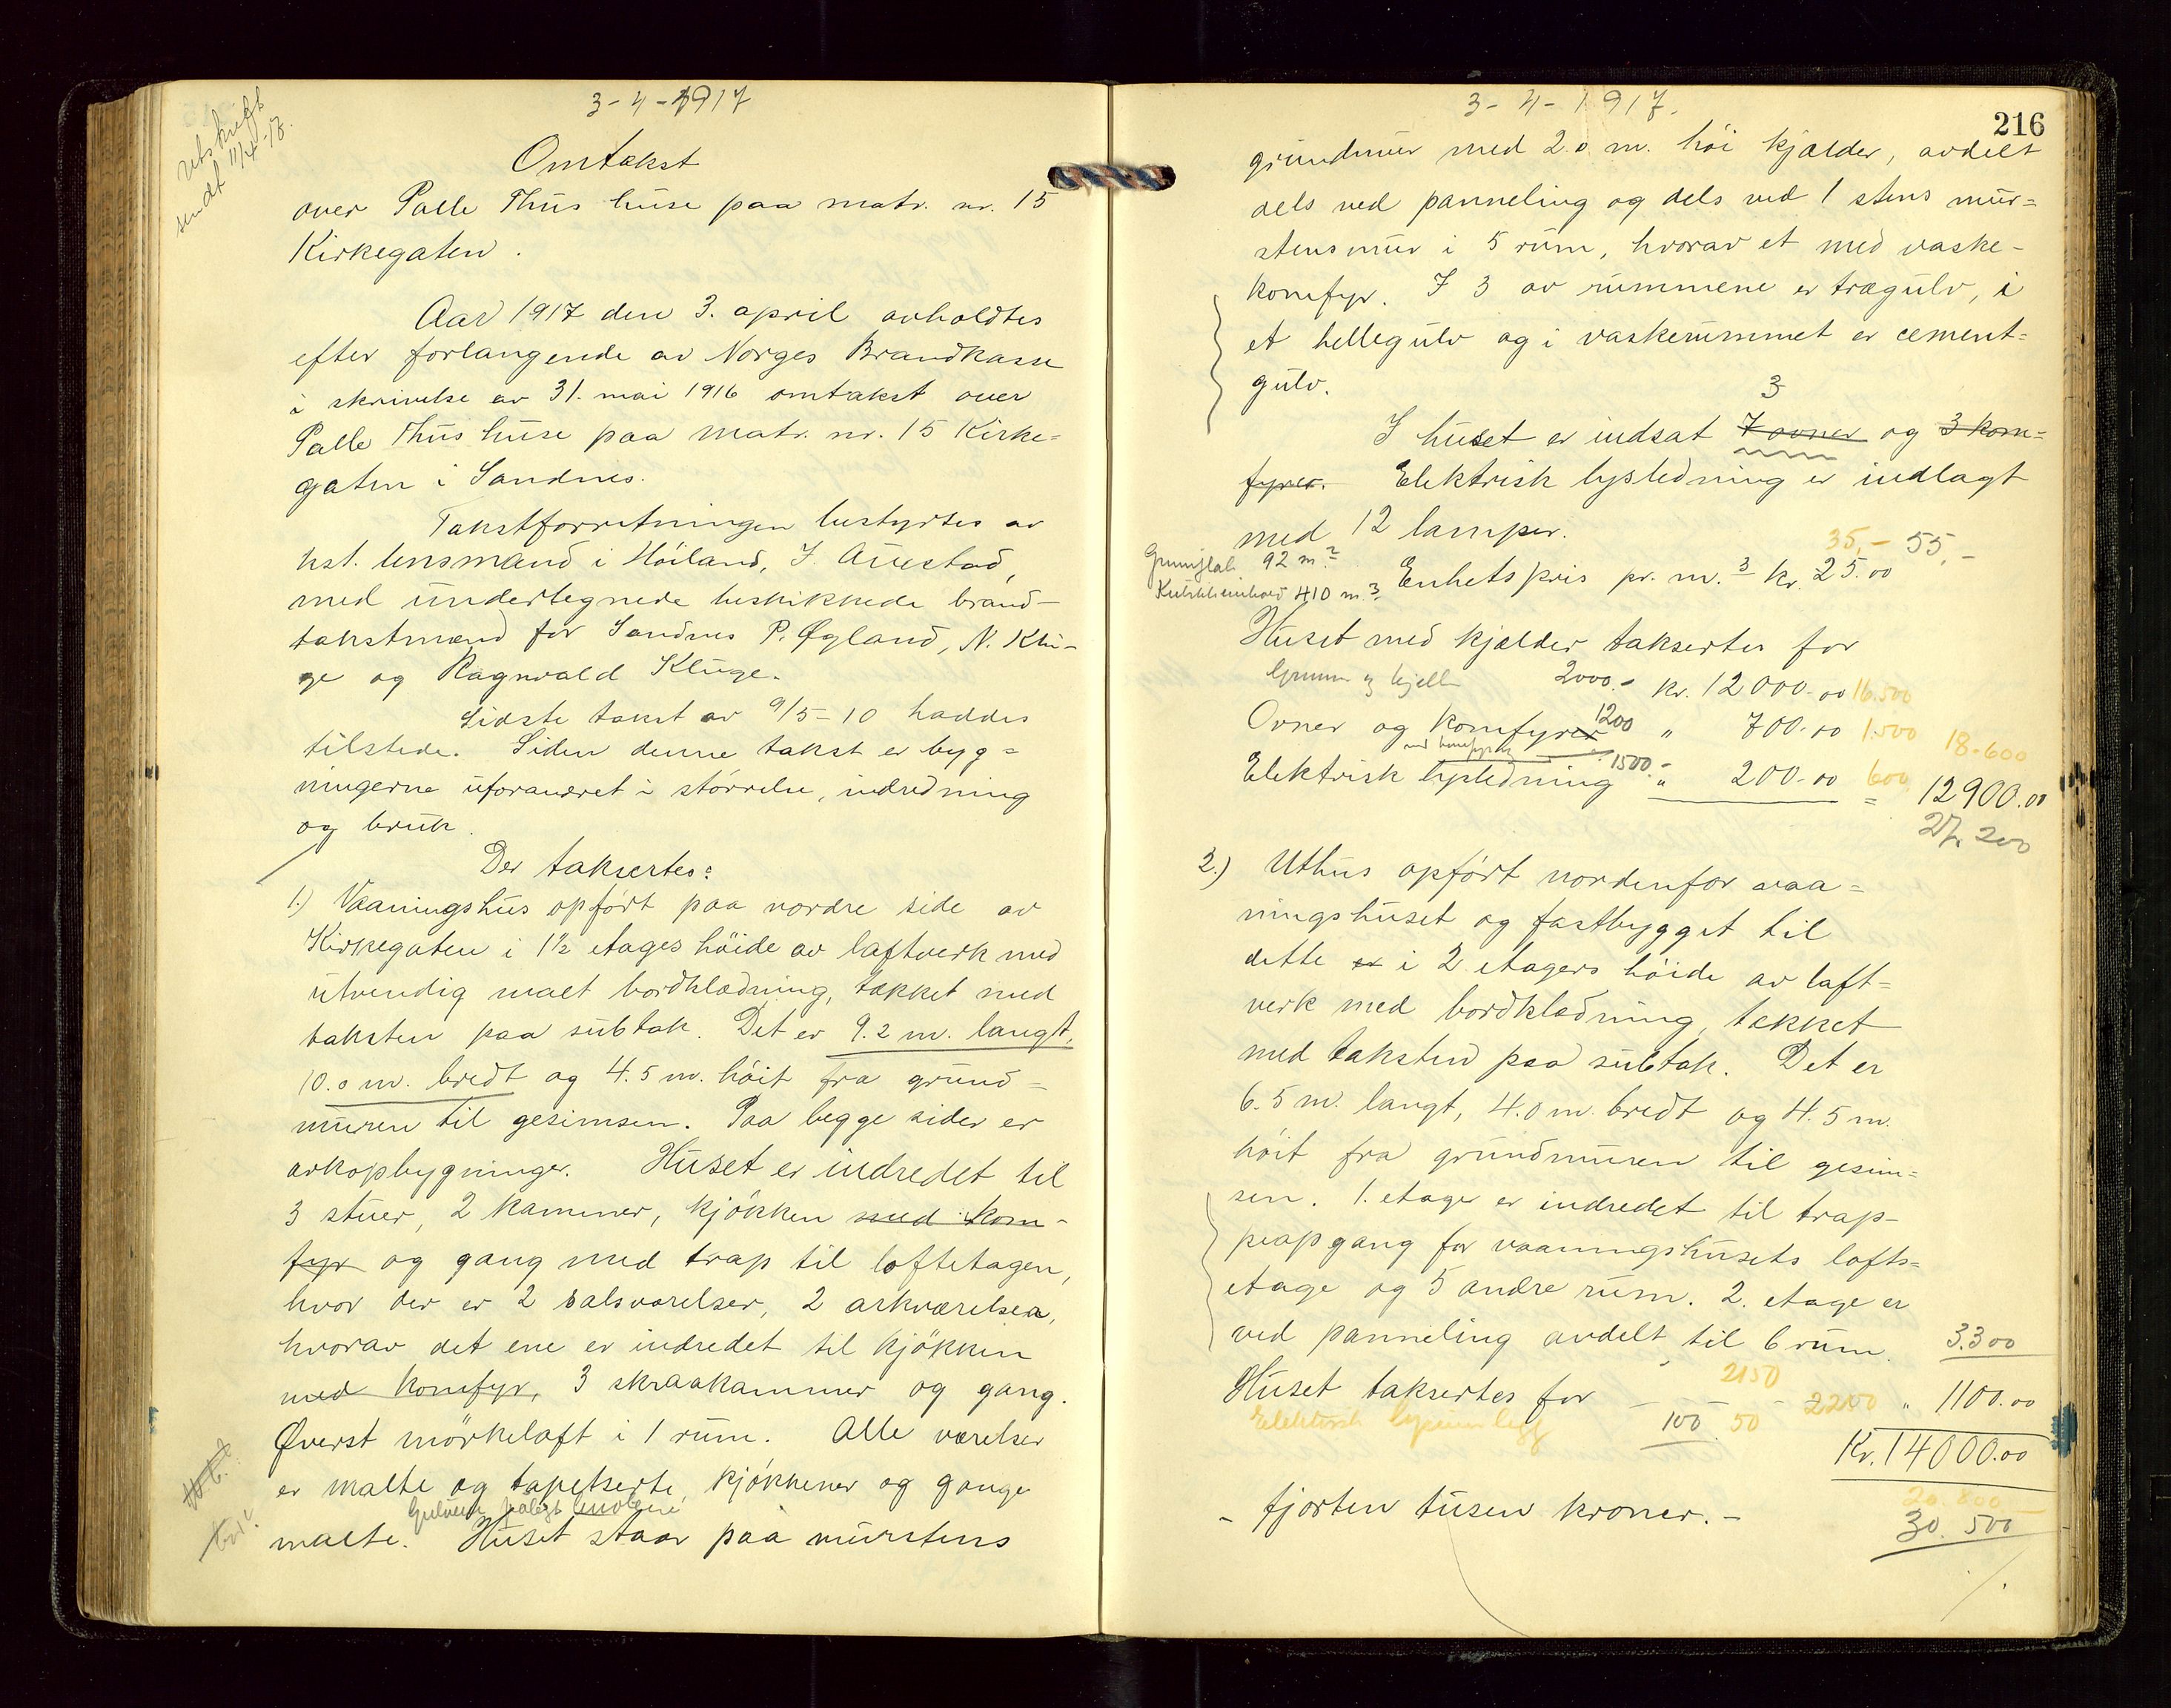 3-4-1917
Utskrift
sendt 11/4-17.
Omtakst
over Palle Thus huse paa matr. nr. 15
Kirkegaten.
Aar 1917 den 3. april avholdtes
efter forlangende av Norges Brandkasse
i skrivelse av 31. mai 1916 omtakst over
Palle Thus huse paa matr. nr. 15 Kirke=
gaten i Sandnes.
Takstforretningen bestyrtes av
kst. lensmand i Høiland, J. Auestad,
med undertegnede beskikkede brand-
takstmænd for Sandnes P. Øgland, N. Klu-
ge og Ragnvald Kluge.
Sidste takst av 9/5-10 haddes
tilstede. Siden denne takst er byg=
ningerne uforandret i størrelse, indredning
og bruk.
Der taksertes:
1.) Vaaningshus opført paa nordre side av
Kirkegaten i 1½ etages høide av laftverk med
utvendig malt bordklædning, tækket med
taksten paa subtak. Det er 9.2 m. langt,
10.0 m. bredt og 4.5 m. høit fra grund=
muren til gesimsen. Paa begge sider er
arkopbygninger. Huset er indredet til
3 stuer, 2 kammer, kjøkken med kom-
fyr og gang med trap til loftetagen,
hvor der er 2 salsværelser, 2 arkværelser,
hvorav det ene er indredet til kjøkken
med komfyr, 3 skraakammer og gang.
Øverst mørkeloft i 1 rum. Alle værelser
er malte og tapetserte, kjøkkener og gange
Gulvene pålagt linoleum
malte. Huset staar paa murstens
3-4-1917.
216
grundmur med 2.0 m. høi kjælder, avdelt
dels ved panneling og dels ved 1 stens mur=
stensmur i 5 rum, hvorav et med vaske-
komfyr. I 3 av rummene er trægulv, i
et hellegulv og i vaskerummet er cement=
gulv.
3
I huset er indsat 7 ovner og 3 kom=
fyrer. Elektrisk lysledning er indlagt
med 12 lamper.
35,- 55,-
Grunnflate 92 m.2
Kubikkinnhold 410 m.3
Enhetspris pr. m.3 kr. 25.00
Huset med kjælder taksertes for
Grunn og kjeller 2000.- kr. 12000.00 16.500
Ovner og komfyrer 1200 " 700.00 1.500 18.600
Elektrisk lysledning 1500.- " 200.00 600 = 12900.00
27.200
2.) Uthus opført nordenfor vaa=
ningshuset og fastbygget til
dette er i 2 etagers høide av laft=
verk med bordklædning, tækket
med taksten paa subtak. Det er
6.5 m. langt, 4.0 m. bredt og 4.5 m.
høit fra grundmuren til gesim=
sen. 1. etage er indredet til trap-
peopgang for vaaningshusets lofts=
etage og 5 andre rum. 2. etage er
ved panneling avdelt til 6 rum. 3.300
2150
Huset taksertes for - - 2200 " 1100.00
Elektrisk 100 50
Kr. 14000.00
20.800
- fjorten tusen kroner. -
30.500